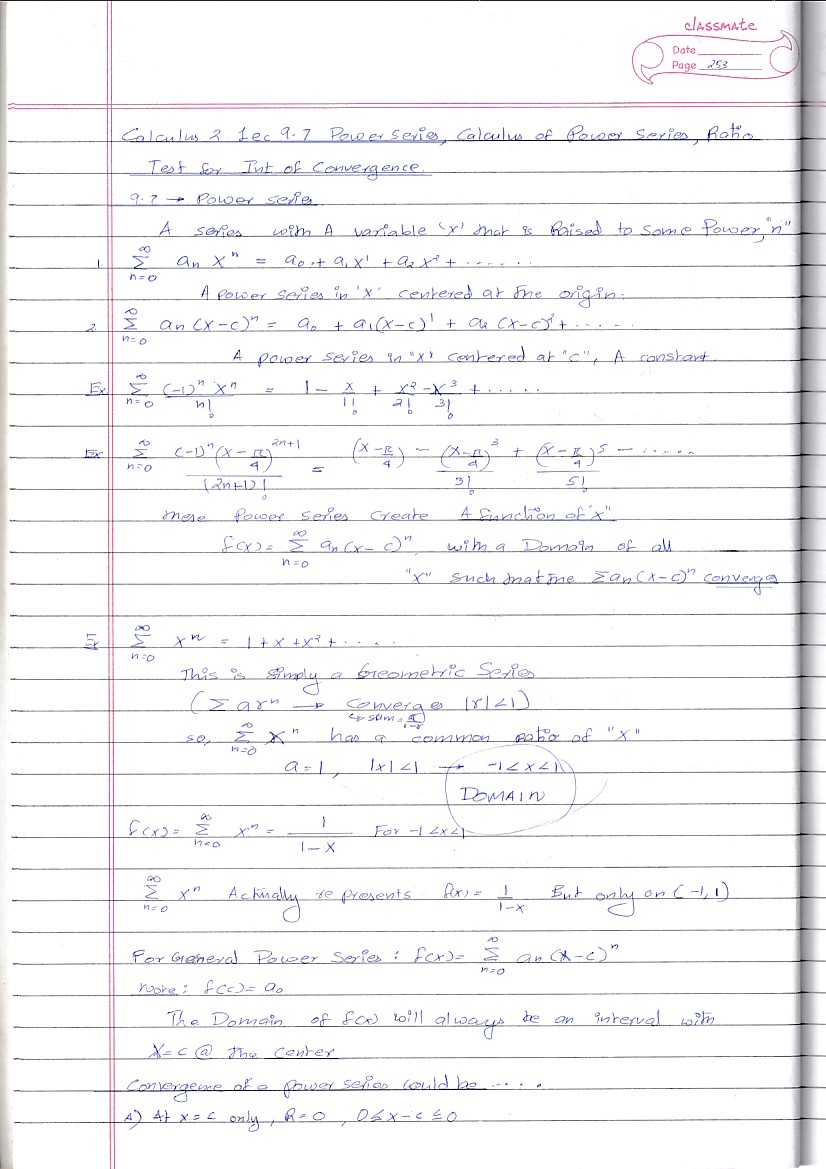 classmate
Date
Page 253
Calculus 2 Lec 9.7 Power Series, Calculus of Power Series, Ratio to
Test for Int of Convergence.
9.7 → Power series
A series with A variable 'x' that is Raised to some Power, "n"
1. ∞Σn=0 an x^n = a0 + a1x^1 + a2x^2 + ......
A power series in 'x' centered at the origin.
2. ∞Σn=0 an (x-c)^n = a0 + a1(x-c)^1 + a2 (x-c)^2 + .....
A power series in "x" centered at "c", A constant.
Ex ∞Σn=0 (-1)^n x^n / n! = 1 - x/1! + x^2/2! - x^3/3! + .....
Ex ∞Σn=0 (-1)^n (x - π/4)^(2n+1) / (2n+1)! = (x - π/4) - (x - π/4)^3 / 3! + (x - π/4)^5 / 5! - .....
these Power series Create A function of "x"
f(x) = ∞Σn=0 an (x-c)^n, with a Domain of all
"x" such that the Σan(x-c)^n converges
Ex ∞Σn=0 x^n = 1 + x + x^2 + ....
This is simply a Geometric Series
(Σ ar^n → Converges |r|<1)
↳ sum = a/1-r
so, ∞Σn=0 x^n has a common ratio of "x"
a = 1, |x|<1 → -1<x<1
DOMAIN
f(x) = ∞Σn=0 x^n = 1/1-x For -1<x<1
∞Σn=0 x^n Actually represents f(x) = 1/1-x But only on (-1,1)
For General Power Series : f(x) = ∞Σn=0 an (x-c)^n
note: f(c) = a0
The Domain of f(x) will always be an interval with
x=c @ the center
Convergence of a power series could be ....
A) At x=c only, R=0, 0≤x-c≤0